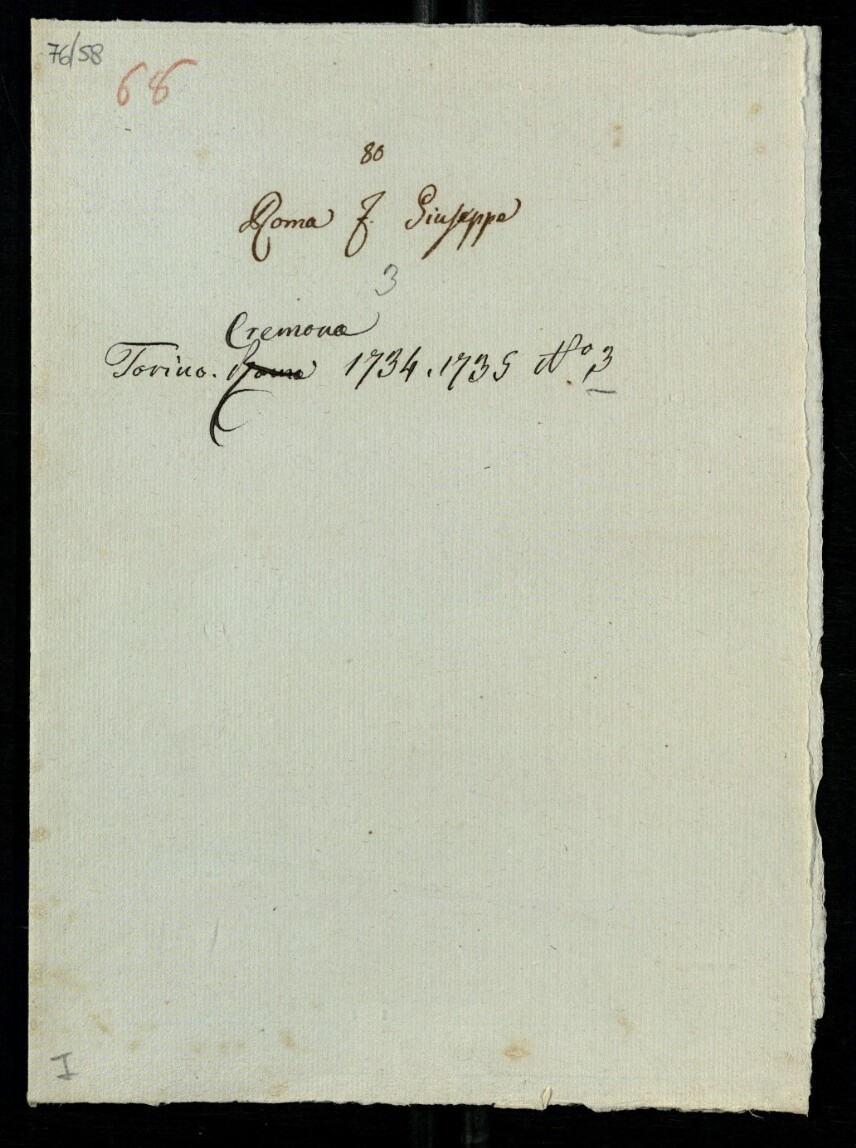 76/58
68
80
Roma F. Giuseppe
3
Cremona
Torino. Roma 1734.1735 No 3
I